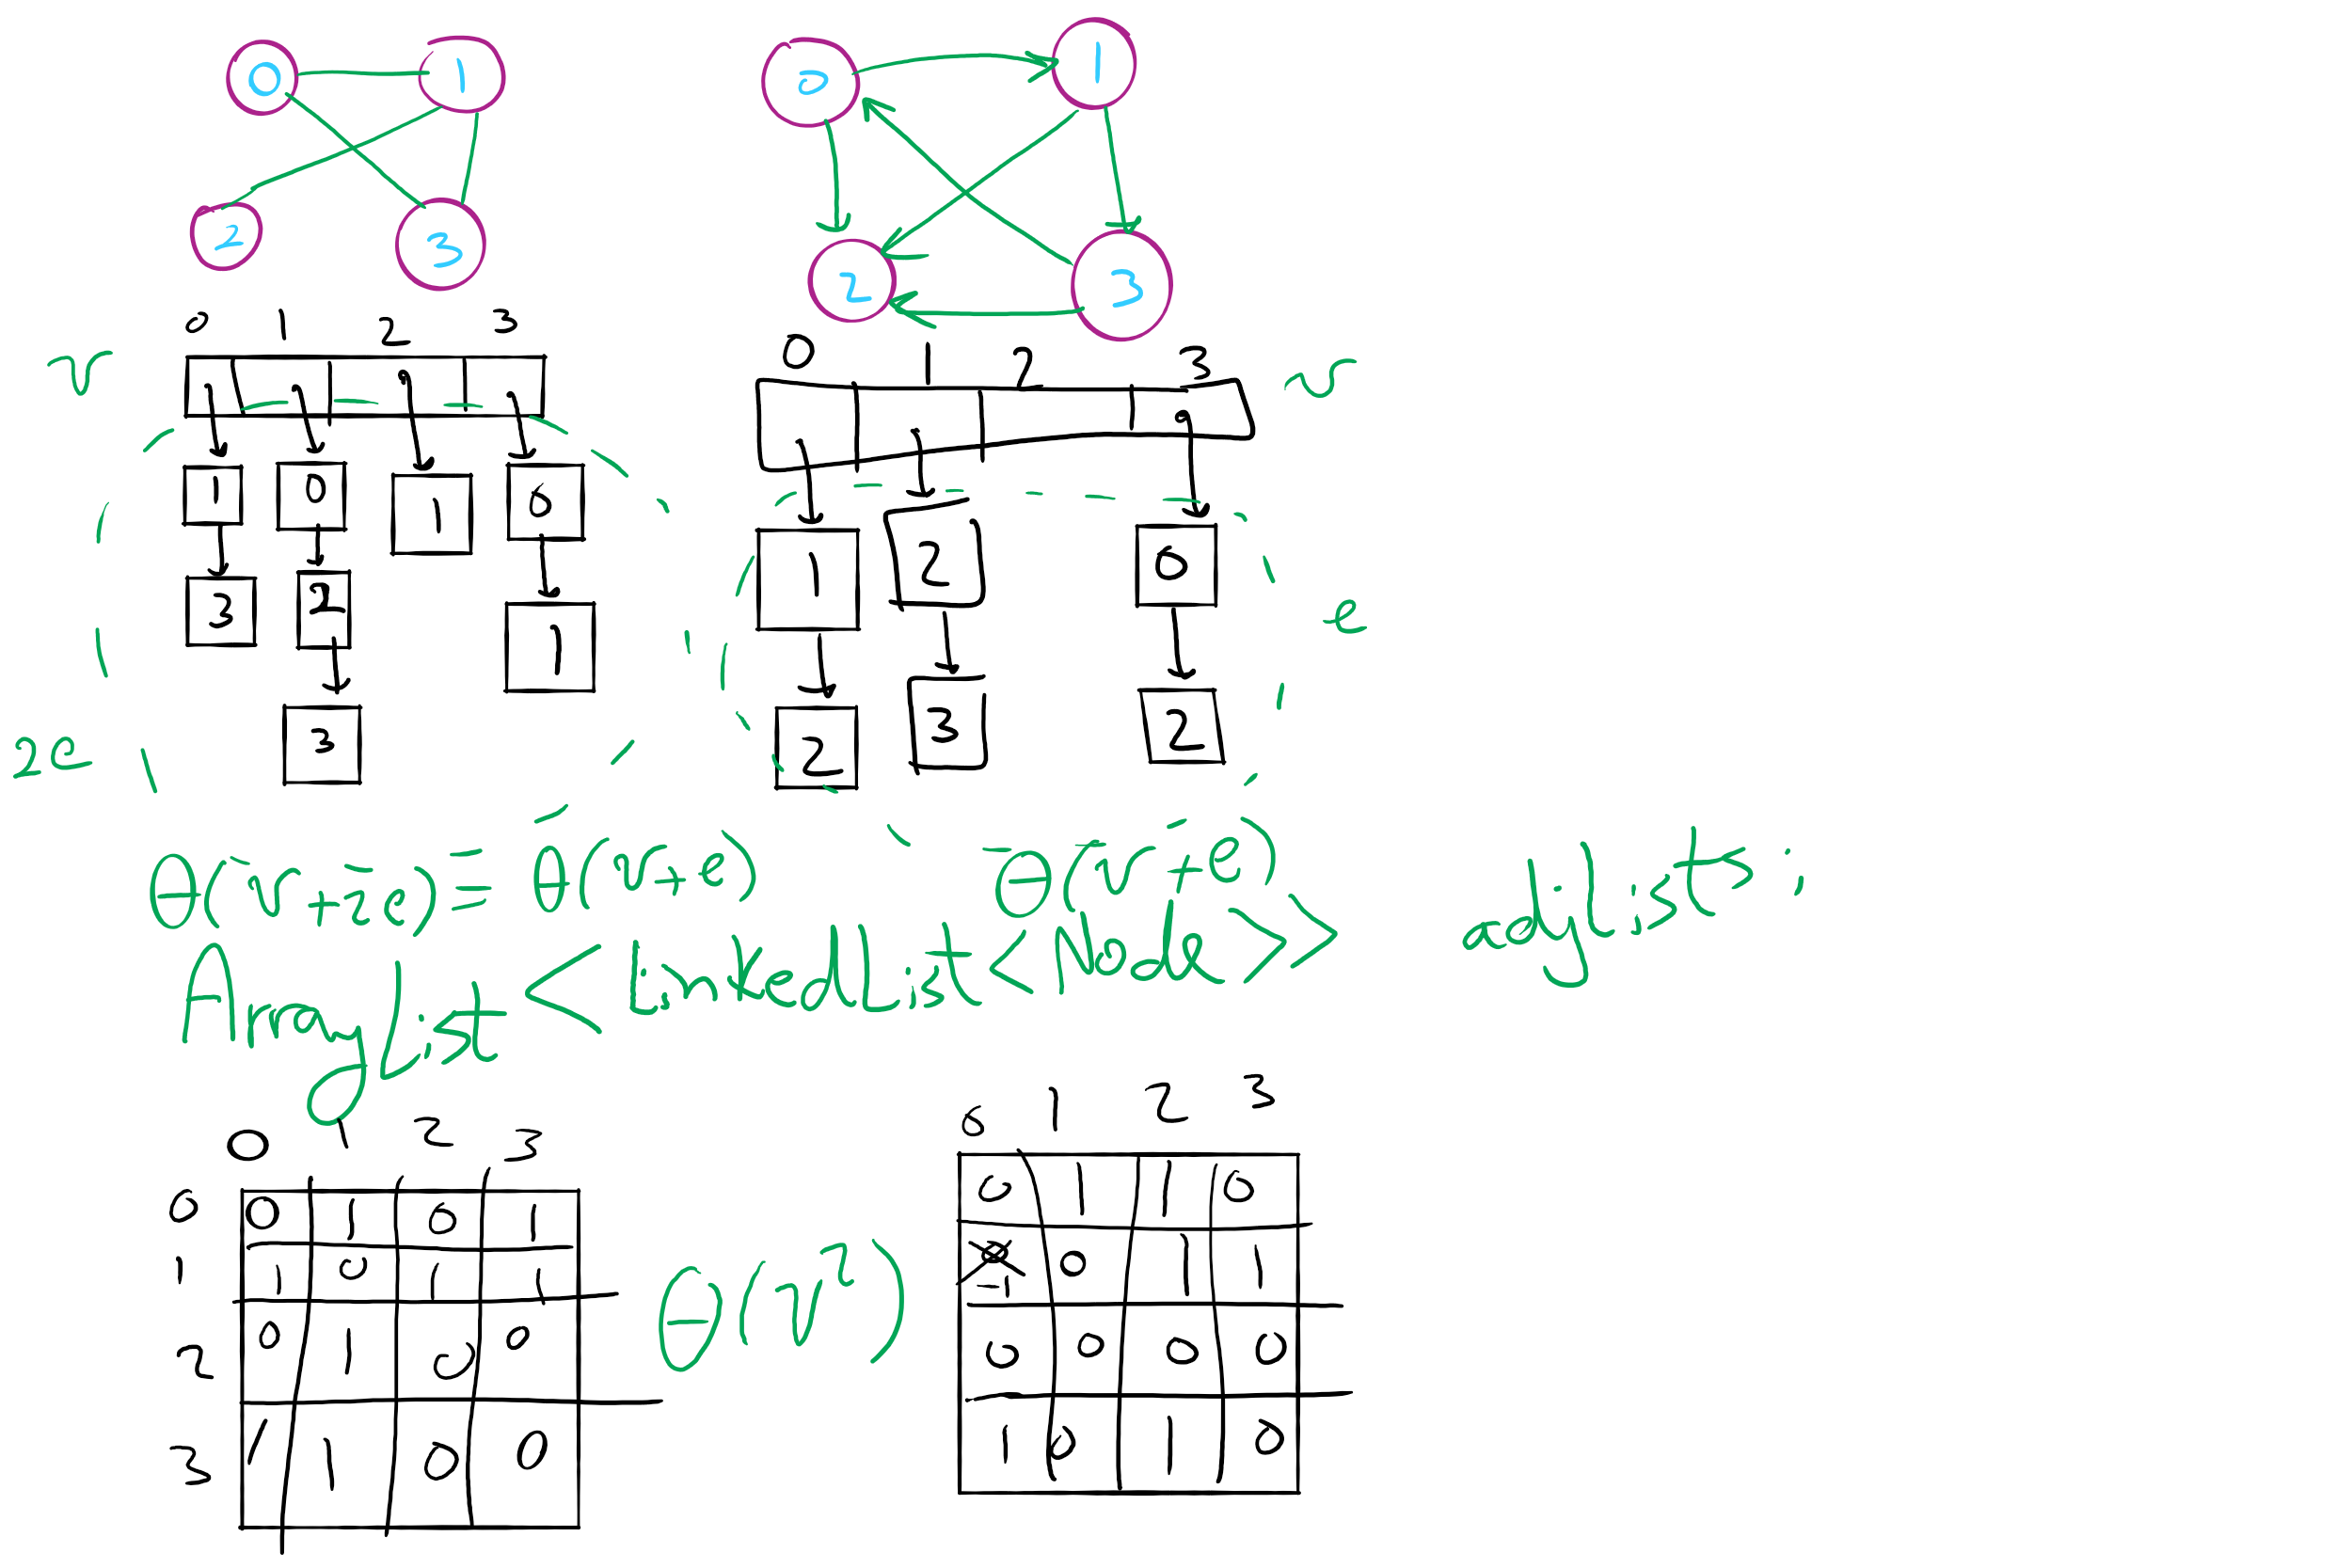 0 1
2 3
0 1
2 3
0 1 2 3
v
1 0 1 0
3 2 1
3
2e
0 1 2 3
v
1 2 0
2 3 2
e
θ(v+2e) = θ(v+e)
θ(v+e)
ArrayList<LinkedList<Node>> adjLists;
0 1 2 3
0 0 1 0 1
1 1 0 1 1
2 0 1 0 0
3 1 1 0 0
θ(v²)
0 1 2 3
0 1 1 0
-1 0 1 1
0 0 0 0
1 0 1 0